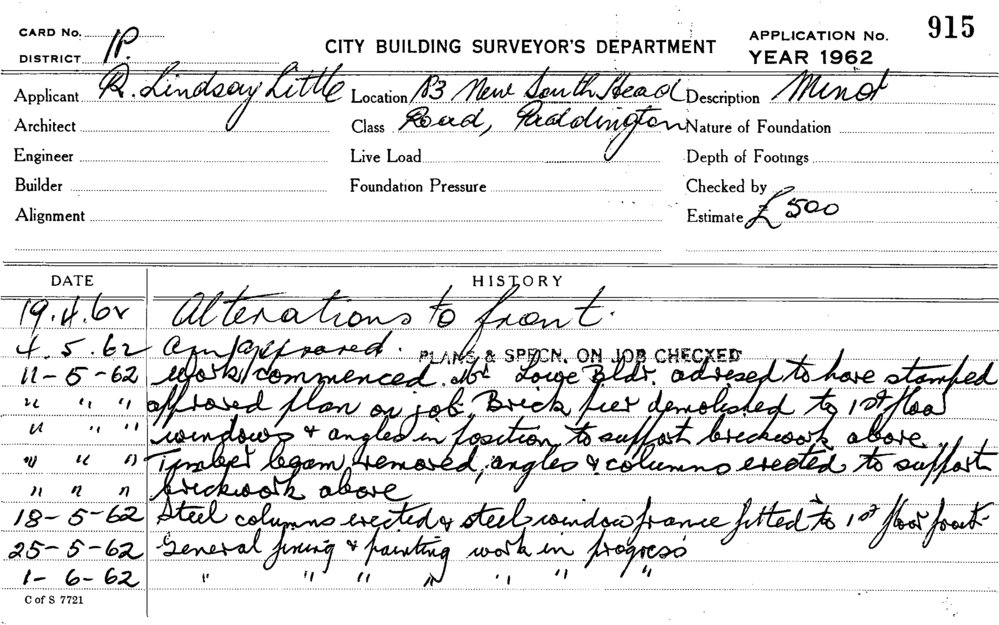 CARD No. 1P. CITY BUILDING SURVEYOR'S DEPARTMENT APPLICATION No. 915
DISTRICT YEAR 1962
Applicant R. Lindsay Little Location 183 New South Head Description Minor
Architect Class Road, Paddington Nature of Foundation
Engineer Live Load Depth of Footings
Builder Foundation Pressure Checked by
Alignment Estimate £500
DATE HISTORY
19.4.62 Alterations to front.
4.5.62 approved. PLANS & SPECN. ON JOB CHECKED
11-5-62 Work commenced. Mr Lowe Bldr. advised to have stamped
" " " approved plan on job. Brick pier demolished to 1st floor
" " " windows & angles in position to support brickwork above.
" " " Timber beam removed, angles & columns erected to support
" " " brickwork above
18-5-62 Steel columns erected & steel window frame fitted to 1st floor front.
25-5-62 General fixing & painting work in progress
1-6-62 " " " " " " "
C of S 7721